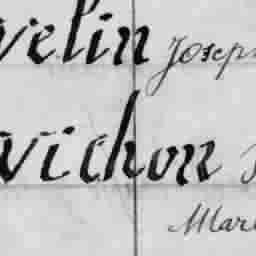 velin Joseph
vichon
Mari